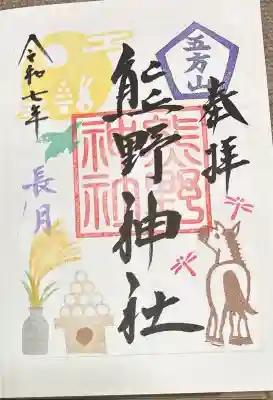 奉拝
五方山
熊野神社
熊野
神社
令和七年
長月